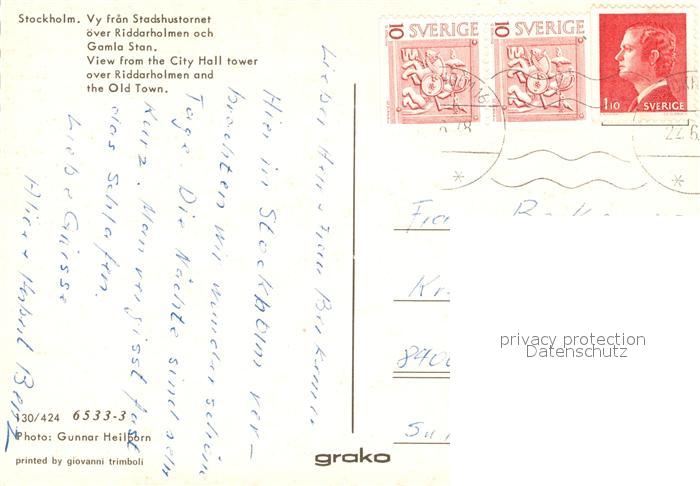 Stockholm. Vy från Stadshustornet
över Riddarholmen och
Gamla Stan.
View from the City Hall tower
over Riddarholmen and
the Old Town.
10 SVERIGE
10 SVERIGE
1.10 SVERIGE
22.6
Lieber Herr + Frau
Hier in Stockholm ver-
brachten wir wunderschöne
Tage. Die Nächte sind sehr
Kurz. Man vergisst fast
das Schlafen.
Liebe Grüsse
Benz
Kr.
8400
privacy protection
Datenschutz
130/424 6533-3
Photo: Gunnar Heilborn
printed by giovanni trimboli
grako